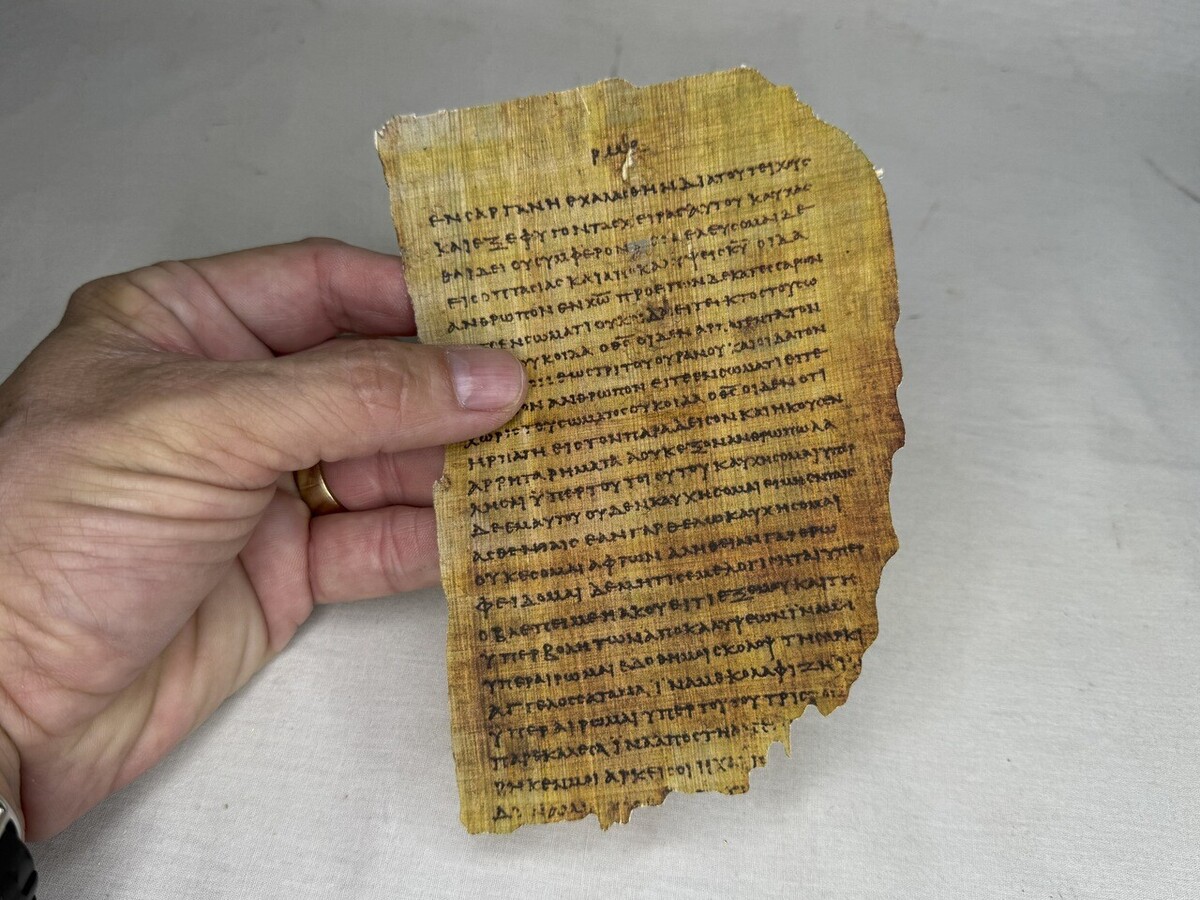 ΕΝ ϹΑΡΓΑΝΗ ΕΧΑΛΑϹΘΗΝ ΔΙΑ ΤΟΥ ΤΕΙΧΟΥϹ
ΚΑΙ ΕΞΕΦΥΓΟΝ ΤΑϹ ΧΕΙΡΑϹ ΑΥΤΟΥ ΚΑΥΧΑϹ
ΘΑΙ ΔΕΙ ΟΥ ϹΥΜΦΕΡΟΝ ΕΛΕΥϹΟΜΑΙ ΔΕ
ΕΙϹ ΟΠΤΑϹΙΑϹ ΚΑΙ ΑΠΟΚΑΛΥΨΕΙϹ Κ̅Υ̅ ΟΙΔΑ
ΑΝΘΡΩΠΟΝ ΕΝ Χ̅Ω̅ ΠΡΟ ΕΤΩΝ ΔΕΚΑΤΕϹϹΑΡΩΝ
ΕΝ ϹΩΜΑΤΙ ΟΥΚ ΕΙΤΕ ΕΚΤΟϹ ΤΟΥ ϹΩ
ΟΥΚ ΟΙΔΑ Ο Θ̅Ϲ̅ ΟΙΔΕΝ ΑΡΠΑΓΕΝΤΑ ΤΟΝ
ΕΩϹ ΤΡΙΤΟΥ ΟΥΡΑΝΟΥ ΚΑΙ ΟΙΔΑ ΤΟΝ
ΑΝΘΡΩΠΟΝ ΕΙΤΕ ΕΝ ϹΩΜΑΤΙ ΕΙΤΕ
ΧΩΡΙϹ ΤΟΥ ϹΩΜΑΤΟϹ ΟΥΚ ΟΙΔΑ Ο Θ̅Ϲ̅ ΟΙΔΕΝ ΟΤΙ
ΗΡΠΑΓΗ ΕΙϹ ΤΟΝ ΠΑΡΑΔΕΙϹΟΝ ΚΑΙ ΗΚΟΥϹΕΝ
ΑΡΡΗΤΑ ΡΗΜΑΤΑ Α ΟΥΚ ΕΞΟΝ ΑΝΘΡΩΠΩ ΛΑ
ΛΗϹΑΙ ΥΠΕΡ ΤΟΥ ΤΟΙΟΥΤΟΥ ΚΑΥΧΗϹΟΜΑΙ ΥΠΕΡ
ΔΕ ΕΜΑΥΤΟΥ ΟΥΔΕΝ ΚΑΥΧΗϹΟΜΑΙ ΕΙ ΜΗ ΕΝ ΤΑΙϹ
ΑϹΘΕΝΕΙΑΙϹ ΕΑΝ ΓΑΡ ΘΕΛΩ ΚΑΥΧΗϹΟΜΑΙ
ΟΥΚ ΕϹΟΜΑΙ ΑΦΡΩΝ ΑΛΗΘΕΙΑΝ ΓΑΡ ΕΡΩ
ΦΕΙΔΟΜΑΙ ΔΕ ΜΗ ΤΙϹ ΕΜΕ ΛΟΓΙϹΗΤΑΙ ΥΠΕΡ
Ο ΒΛΕΠΕΙ ΜΕ Η ΑΚΟΥΕΙ ΤΙ ΕΞ ΕΜΟΥ ΚΑΙ ΤΗ
ΥΠΕΡΒΟΛΗ ΤΩΝ ΑΠΟΚΑΛΥΨΕΩΝ ΪΝΑ ΜΗ
ΥΠΕΡΑΙΡΩΜΑΙ ΕΔΟΘΗ ΜΟΙ ϹΚΟΛΟΨ ΤΗ ϹΑΡΚΙ
ΑΓΓΕΛΟϹ ϹΑΤΑΝΑ ΪΝΑ ΜΕ ΚΟΛΑΦΙΖΗ ΪΝΑ
ΥΠΕΡΑΙΡΩΜΑΙ ΥΠΕΡ ΤΟΥΤΟΥ ΤΡΙϹ
ΠΑΡΕΚΑΛΕϹΑ ΪΝΑ ΑΠΟϹΤΗ
ΡΗΚΕΝ ΜΟΙ ΑΡΚΕΙ ϹΟΙ Η ΧΑΡΙϹ